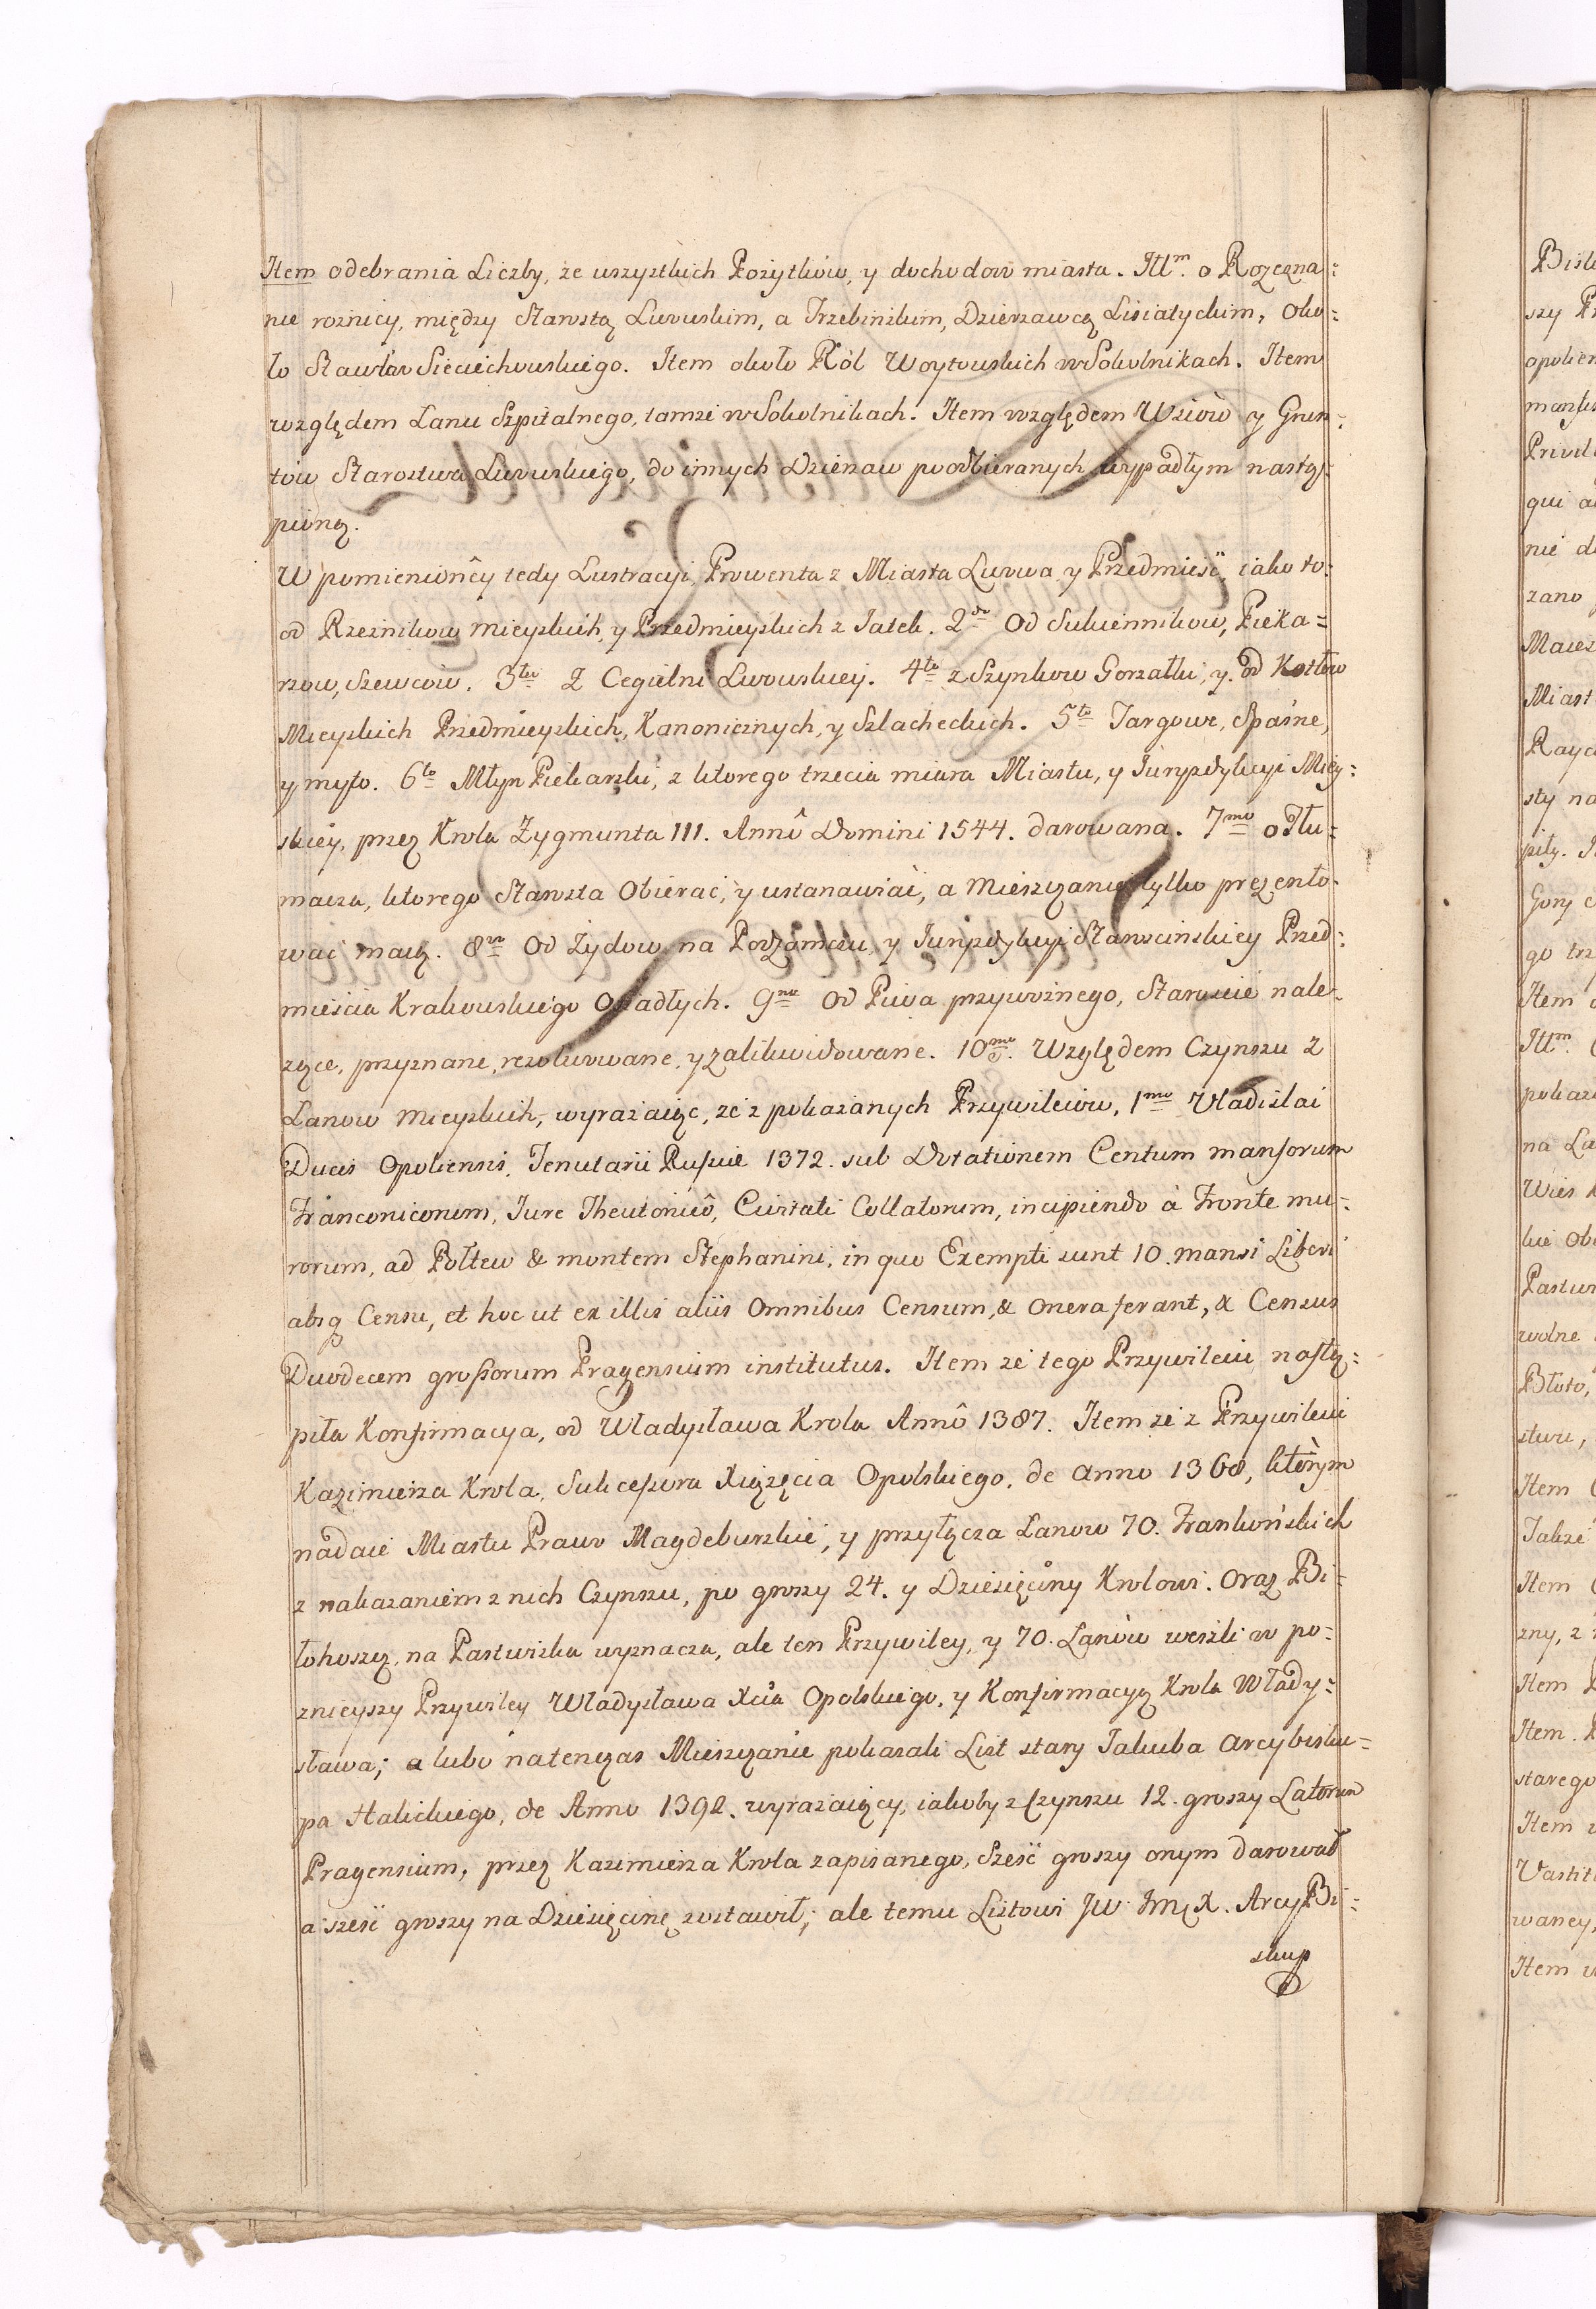 Item odebrania Liczby, ze wszystkich Pożytków, y dochodow miasta. Itt<sup>m</sup>. o Rozezna=
nie roznicy, między Starostą Lwowskim, a Trzebinskim, Dzierzawcą Lisiatyckim, oko=
ło Stawów Sieciechowskiego. Item około Ról Woytowskich w Sokolnikach. Item
względem Łanu Szpitalnego, tamze w Sokolnikach. Item względem Wsiów y Grun=
tów Starostwa Lwowskiego, do innych Dzierzaw poodbieranych wypadłym nastą=
piona.
W pomienionêy tedy Lustracyi, Prowenta z Miasta Lwowa y Przedmieść, iako to:
od Rzeźnikow Mieyskich, y Przedmieyskich z Jatek. 2<sup>do</sup> Od Sukiennikow, Pieka=
rzow, Szewców. 3<sup>tio</sup> Z Cegielni Lwowskiey. 4<sup>to</sup> z Szynkow Gorzałki, y od Kotłow
Mieyskich Przedmieyskich, Kanonicznych, y Szlacheckich. 5<sup>to</sup> Targowe, Spaśne,
y myto. 6<sup>to</sup> Młyn Piekarski, z ktorego trzecia miara Miastu, y Jurysdykcyi Miey=
skiéy, przez Krola Zygmunta III. Annô Domini 1544. darowana. 7<sup>mo</sup> o Tłu=
macza, ktorego Starosta Obierać, y ustanawiać, a Mieszczanie tylko prezento-
wać maią. 8<sup>vo</sup> Od Żydow na Podzamczu, y Jurysdykcyi Staroscinskiey Przed=
mieścia Krakowskiego Osiadłych. 9<sup>no</sup> Od Piwa przywoźnego, Staroscie nale-
zące, przyznane, rezolwowane, y zalikwidowane. 10<sup>mo</sup>. Względem Czynszu z
Łanow Mieyskich, wyrażaiąc, ze z pokazanych Przywilejow, 1<sup>mo</sup> Vladislai
Ducis Opoliensis, Tenutarii Russiæ 1372. sub Dotationem Centum mansorum
Franconicorum, Jure Theutonicô, Civitati Collatorum, incipiendo à Fronte mu=
rorum, ad Półtew & montem Stephanini, in quo Exempti sunt 10. mansi Liberi
absq Censu, et hoc ut ex illis aliis Omnibus Censum, & onera ferant, & Census
Duodecem grossorum Pragensium institutus. Item ze tego Przywileiu nastą=
piła Konfirmacya, od Władysława Krola Annô 1387. Item ze z Przywileiu
Kazimierza Krola, Sukcessora Xiążęcia Opolskiego, de anno 1368, którym
nadaie Miastu Prawo Magdeburskie, y przyłącza Łanow 70. Frankońskich
z nakazaniem z nich Czynszu, po groszy 24. y Dziesięciny Krolowi. Oraz Bi=
łohoszcz, na Pastwiska wyznacza, ale ten Przywiley, y 70. Łanów weszli w po=
znieyszy Przywiley Władysława Xcia Opolskiego, y Konfirmacyą Krola Włady=
sława; a lubo natenczas Mieszczanie pokazali List stary Jakuba Arcybisku=
pa Halickiego, de Anno 1392. wyrażaiący, iakoby z Czynszu 12. groszy Latorum
Pragensium, przez Kazimierza Krola zapisanego, Sześć groszy onym darował
a sześć groszy na Dziesięcinę zostawił; ale temu Listowi JW JmX. ArcyBi=
skup